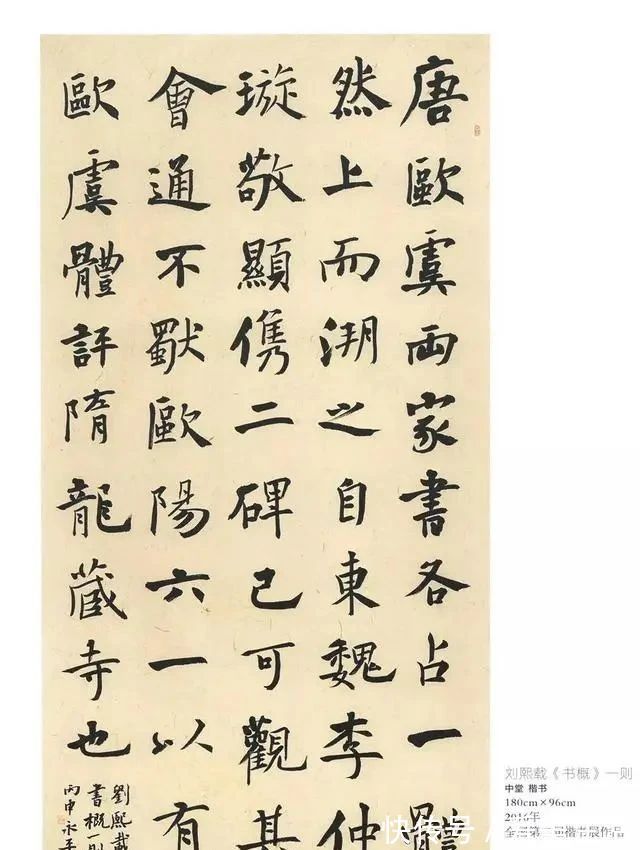 唐歐虞兩家書各占一體
然上而溯之自東魏李仲
璇敬顯儁二碑已可觀其
會通不獨歐陽六一以有
歐虞體評隋龍藏寺也
劉熙載
書概一則
丙申永平
刘熙载《书概》一则
中堂 楷书
180cm×96cm
2016年
全国第 楷书展作品
快传号